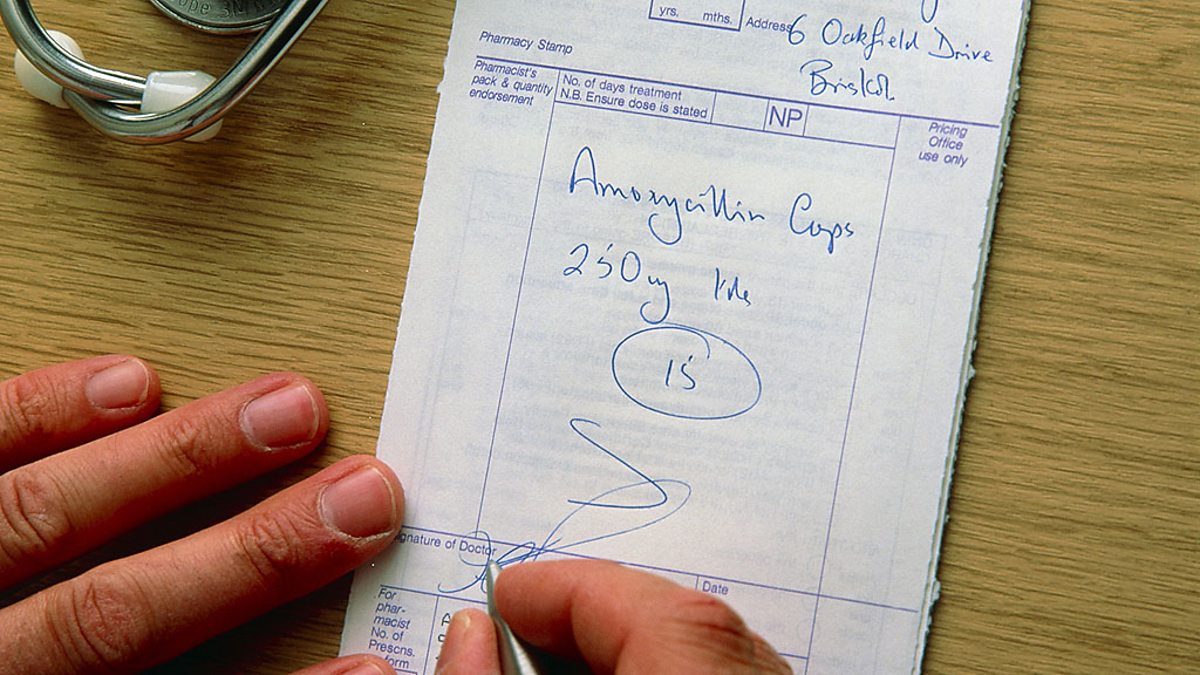 yrs. mths. Address 6 Oakfield Drive
Bristol
Pharmacy Stamp
Pharmacist's
pack & quantity
endorsement
No. of days treatment
N.B. Ensure dose is stated
NP
Pricing
Office
use only
Amoxycillin Caps
250mg
15
Signature of Doctor
Date
For
phar-
macist
No. of
Prescns.
form